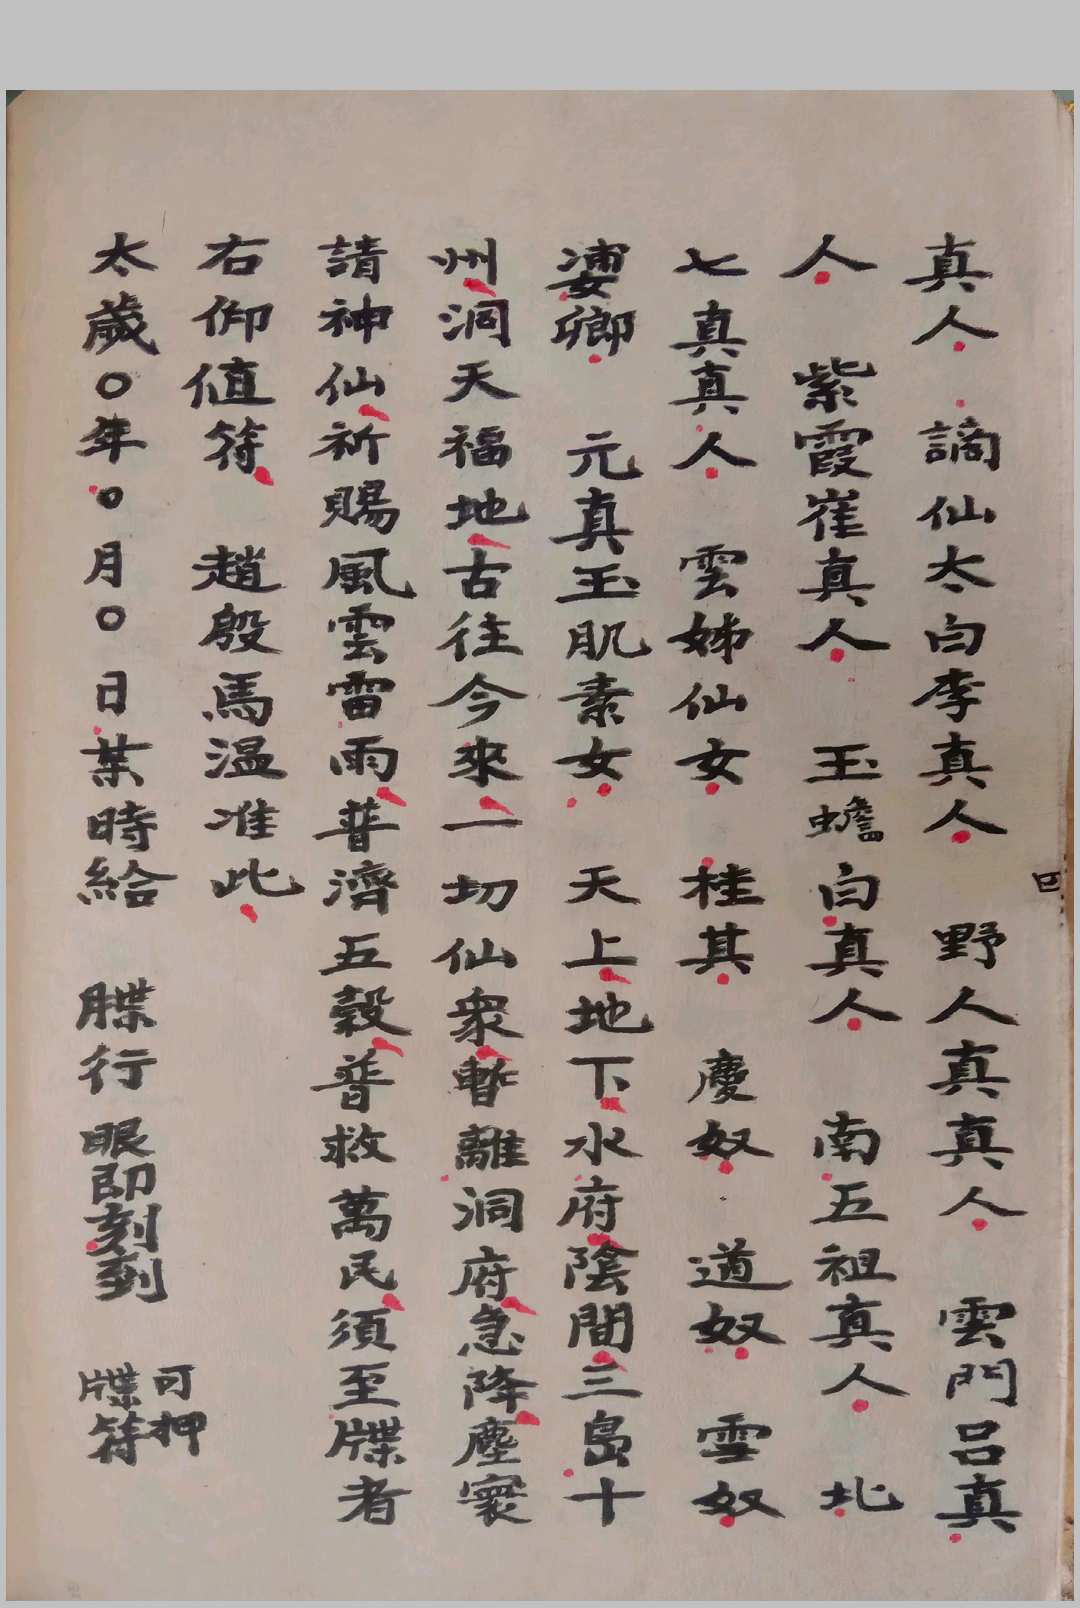 真人 謫仙太白李真人 野人真真人 雲門呂真
人 紫霞崔真人 玉蟾白真人 南五祖真人 北
七真真人 雲姊仙女 桂其 慶奴 道奴 雪奴
凄卿 元真玉肌素女 天上地下水府陰間三島十
州洞天福地古往今來一切仙眾暫離洞府急降塵寰
請神仙祈賜風雲雷雨普濟五穀普救萬民須至牒者
右仰値符 趙殷馬温准此
太歲〇年〇月〇日某時給 牒行眼即刻到 牒符
可押